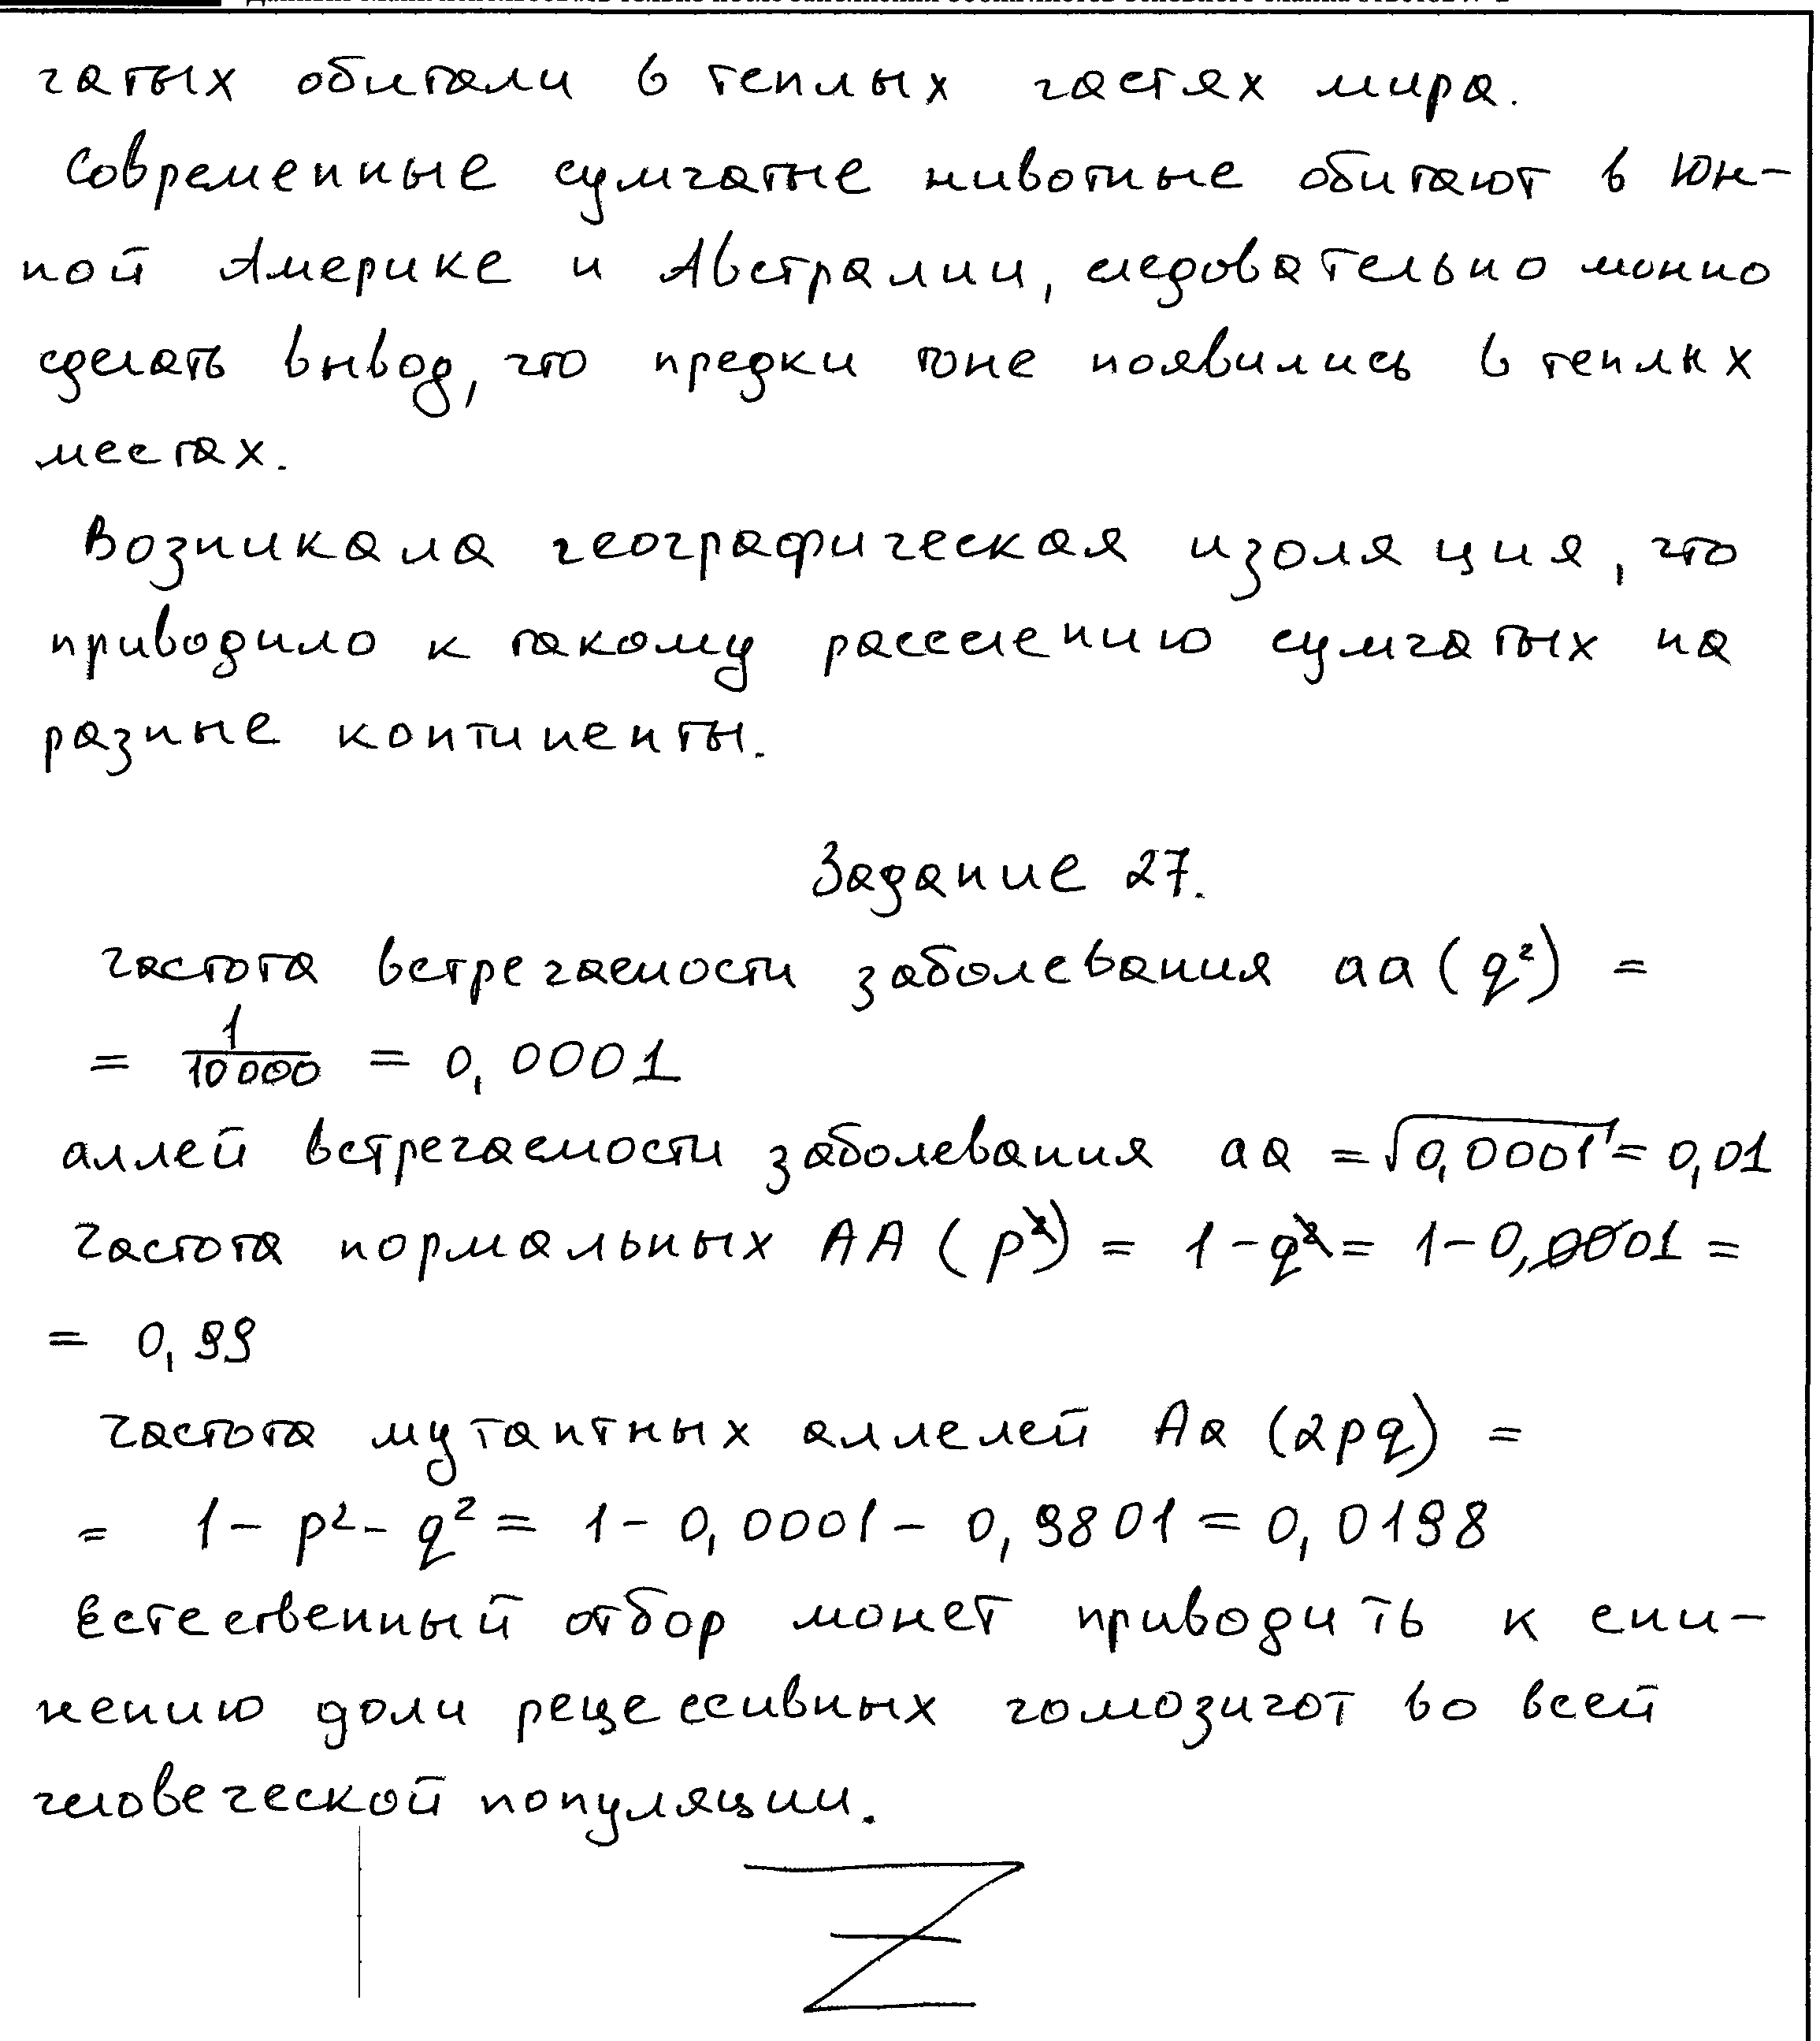 чатых обитали в теплых частях мира.
Современные сумчатые животные обитают в Юж-
ной Америке и Австралии, следовательно можно
сделать вывод, что предки тоже появились в теплых
местах.
Возникала географическая изоляция, что
приводило к такому расселению сумчатых на
разные континенты.
Задание 27.
Частота встречаемости заболевания aa (q²) =
= 1/10000 = 0,0001
аллей встречаемости заболевания aa = √0,0001 = 0,01
Частота нормальных AA (p) = 1 - q = 1 - 0,01 =
= 0,99
Частота мутантных аллелей Aa (2pq) =
= 1 - p² - q² = 1 - 0,0001 - 0,9801 = 0,0198
Естественный отбор может приводить к сни-
жению доли рецессивных гомозигот во всей
человеческой популяции.